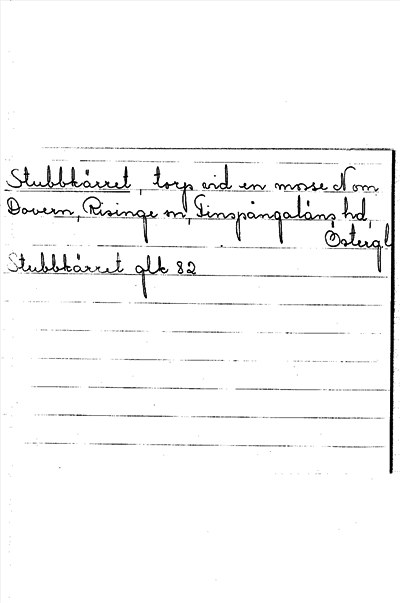 Stubbkärret, torp vid en mosse N om
Dovern, Risinge sn, Finspångaläns hd,
Östergl
Stubbkärret glk 82